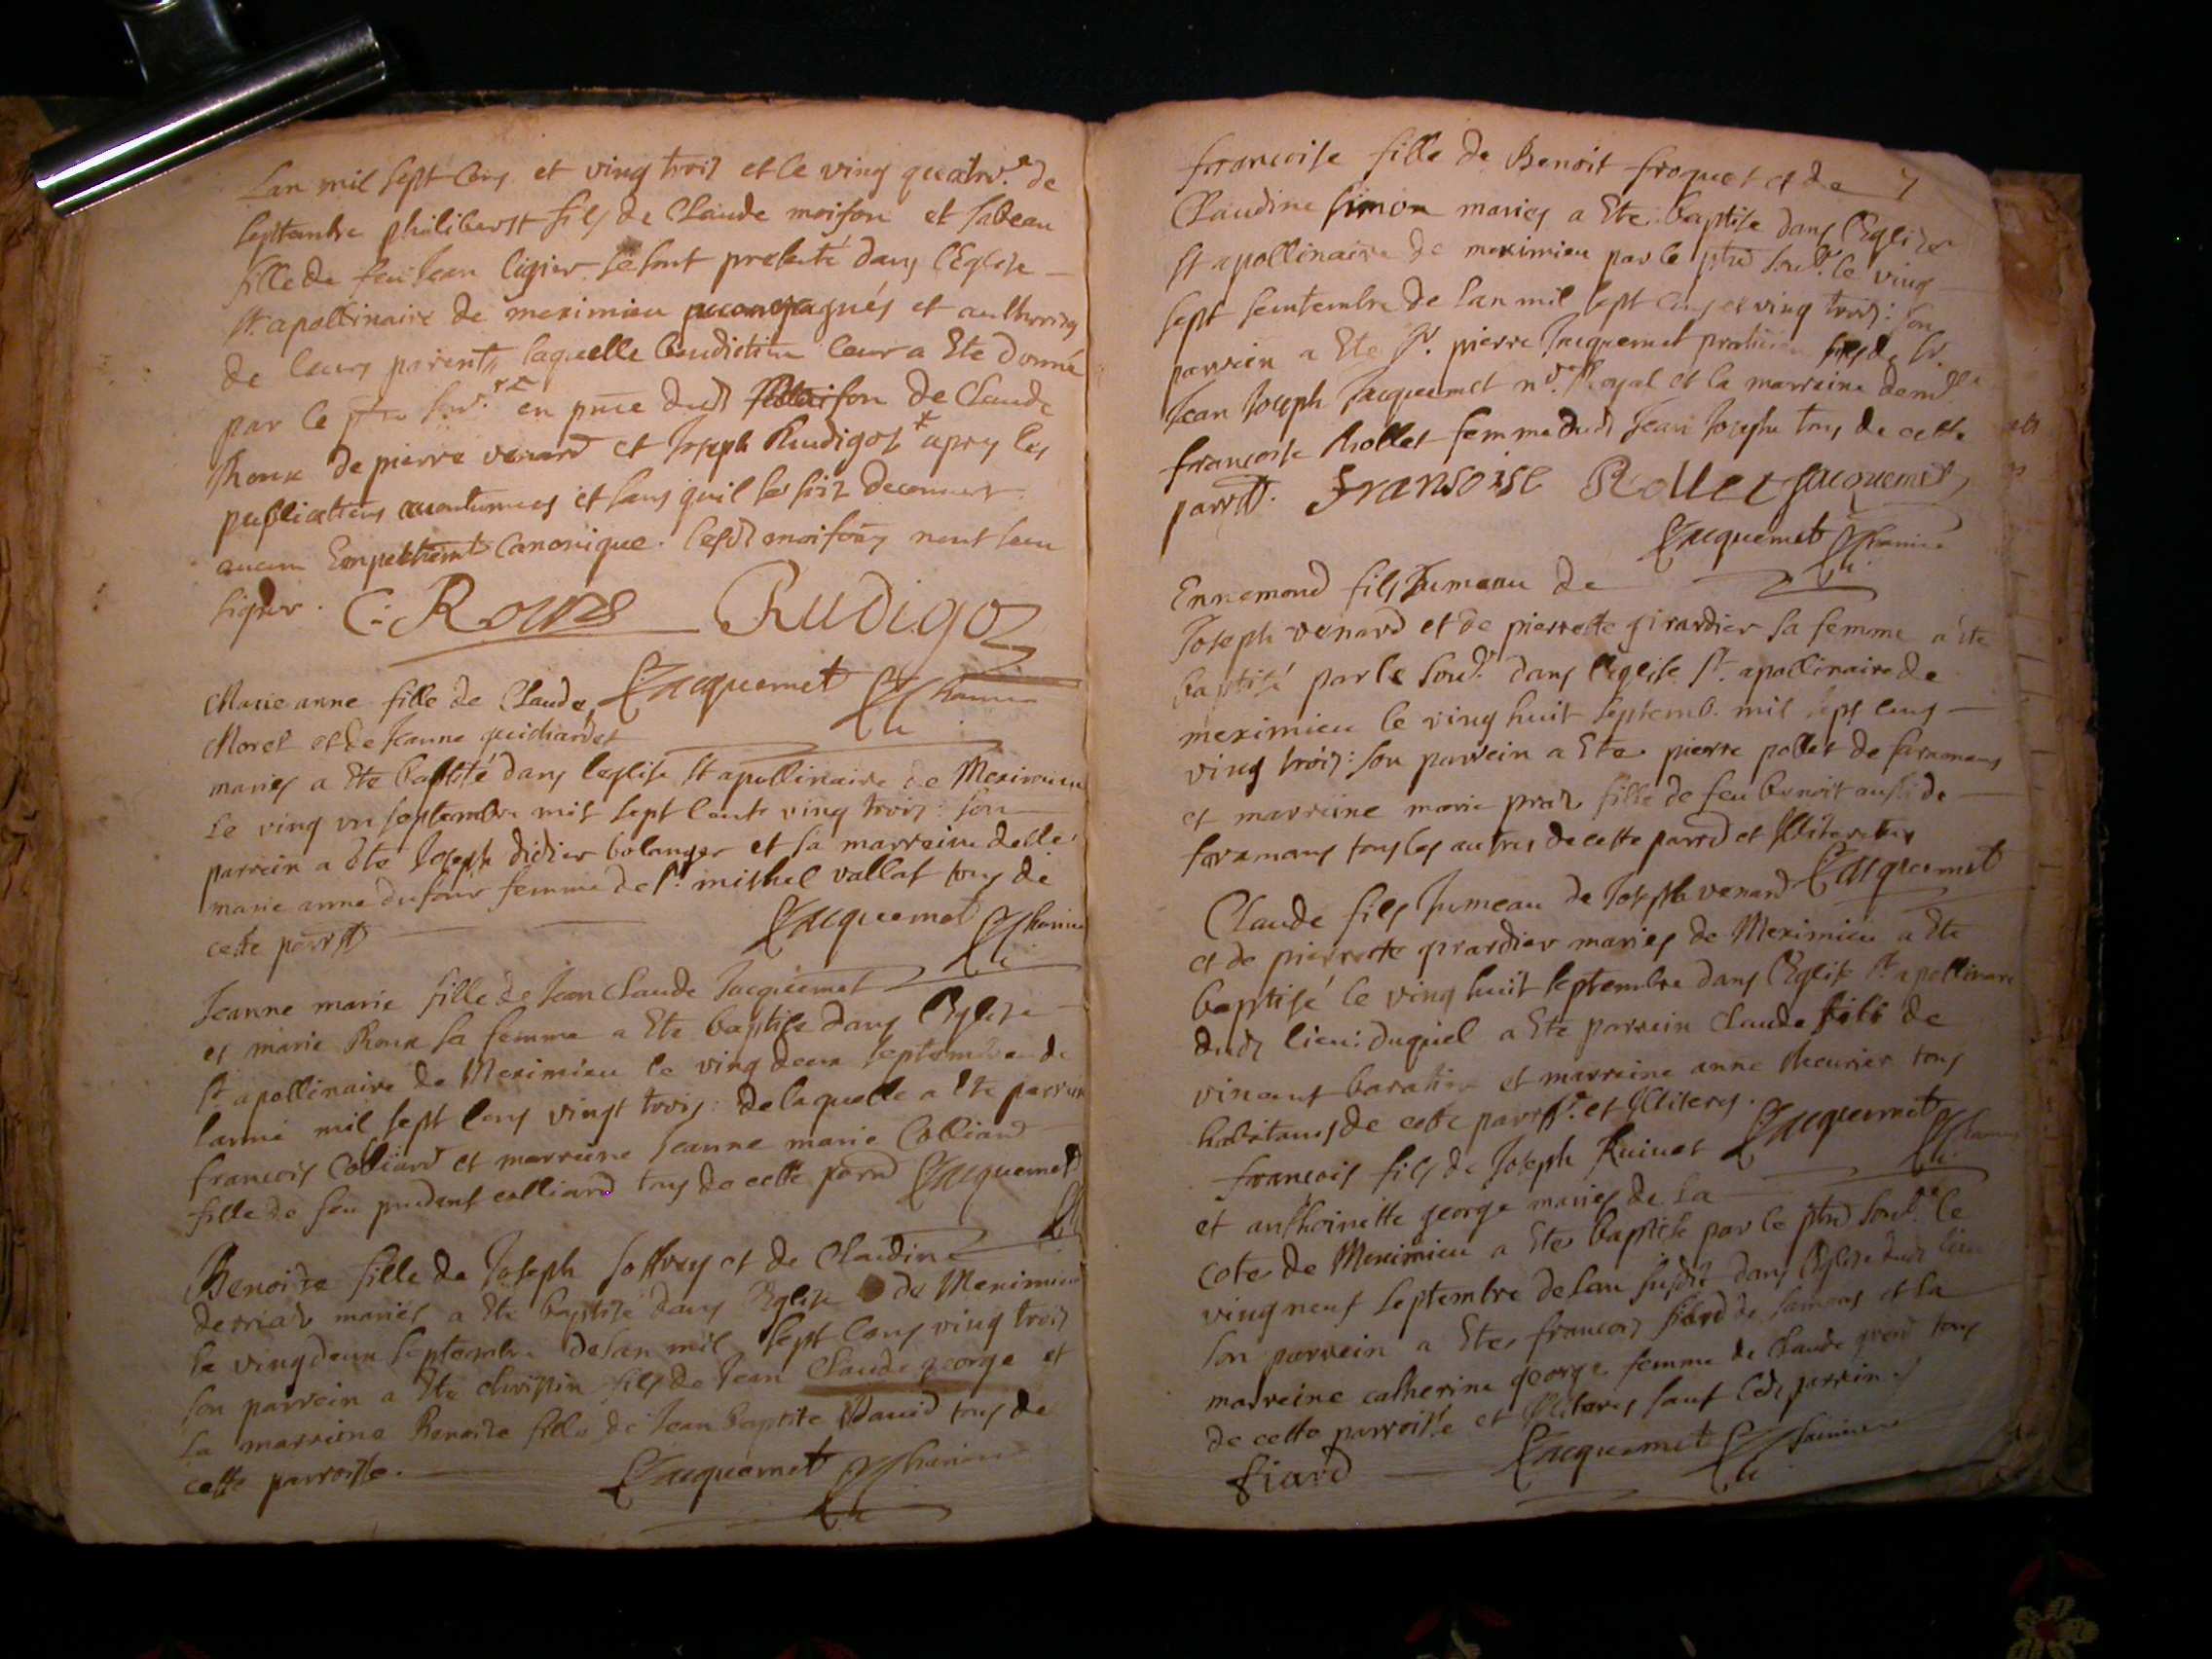 Lan mil sept cens et ving trois et le ving quatrv.e de
septembre philiberst fils de Claude moison et sabeau
fille de feu Jean ligier se sont presenté dans l'Eglise
St. apollinaire de meximieu accompagnés et authorisés
de leurs parents laquelle benediction leur a Ete donné
par le ptre en pnce dud moison de Claude
Roux de pierre venard et Joseph Rudigoz apres les
publications et sans quil se soit decouvert
aucun Empechemt Canonique. lesd moisons nont sceu
signer. C: Roux Rudigoz
Jacquemet
Marie anne fille de Claude
Moret et de Jeanne guichardet
maries a Ete baptisé dans leglise St apollinaire de Meximieu
le ving un septembre mil sept cents ving trois: son
parrein a ete Joseph didier bolanger et sa marreine delle
marie anne dufour femme de sr. mishel vallat tous de
cette parr
Jacquemet
Jeanne marie fille de Jean Claude Jacquemet
et marie Roux sa femme a Ete baptise dans l'Eglise
St apollinaire de Meximieu le ving deux septembre de
lanné mil sept cens vingt trois: de laquelle a Ete parrein
francois Colliard et marreine Jeanne marie Colliard
fille de feu prudent colliard tous de cette parr Jacquemet
Benoite fille de Joseph Joffrey et de Claudine
derriad mariés a Ete baptise dans l'Eglise de Meximieu
le ving deux septembre de lan mil sept cens ving trois
son parrein a Ete fils de Jean Claude george et
la marreine Benoite fille de Jean baptite David tous de
cette parroisse.
Jacquemet
francoise fille de Benoit froquet et de 7
Claudine simon maries a Ete baptise dans l'Eglise
St apollinaire de meximieu par le ptre soud. le ving
sept semtembre de lan mil sept cens et ving trois: son
parrein a Ete Sr. pierre Jacquemet praticien fils de Sr.
Jean Joseph Jacquemet nre. Royal et la marreine demlle
francoise Rollet femme dud Jean Joseph tous de cette
parr. Fransoise Rollet Jacquemet
Jacquemet
Ennemond fils Jumeau de
Joseph venard et de pierrette girardier sa femme a ete
baptisé par le soud. dans l'eglise St. apollinaire de
meximieu le ving huit septemb. mil sept cens
ving trois: son parrein a Ete pierre pollet de faramans
et marreine marie praz fille de feu benoit aussi de
faramans tous les autres de cette parr et Illiterés
Jacquemet
Claude fils Jumeau de Joseph venard
et de pierrette girardier maries de Meximieu a Ete
baptisé le ving huit septembre dans l'Eglise St. apollinare
dud lieu: duquel a Ete parrein Claude fils de
vincent baratier et marreine anne Meunier tous
habitans de cette parr. et Illiterés. Jacquemet
francois fils de Joseph Ruinet
et anthoinette george maries de la
cote de Meximieu a Ete baptise par le ptre soud. le
ving neuf septembre de lan susdit dans l'Eglise dud lieu
son parrein a Ete francois fiard de samans et la
marreine catherine george femme de Claude tous
de cette parroisse et Illiterés sauf led parrein.
fiard Jacquemet